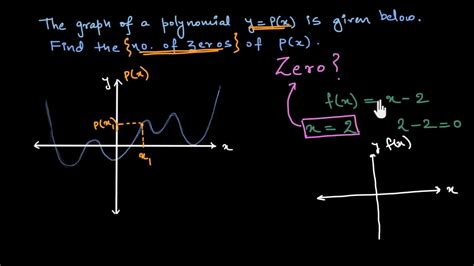 The graph of a polynomial y = P(x) is given below.
Find the {no. of zeros} of P(x).
Zero?
y P(x)
f(x) = x - 2
P(x₁)
x = 2
2 - 2 = 0
x₁
x
y f(x)
x